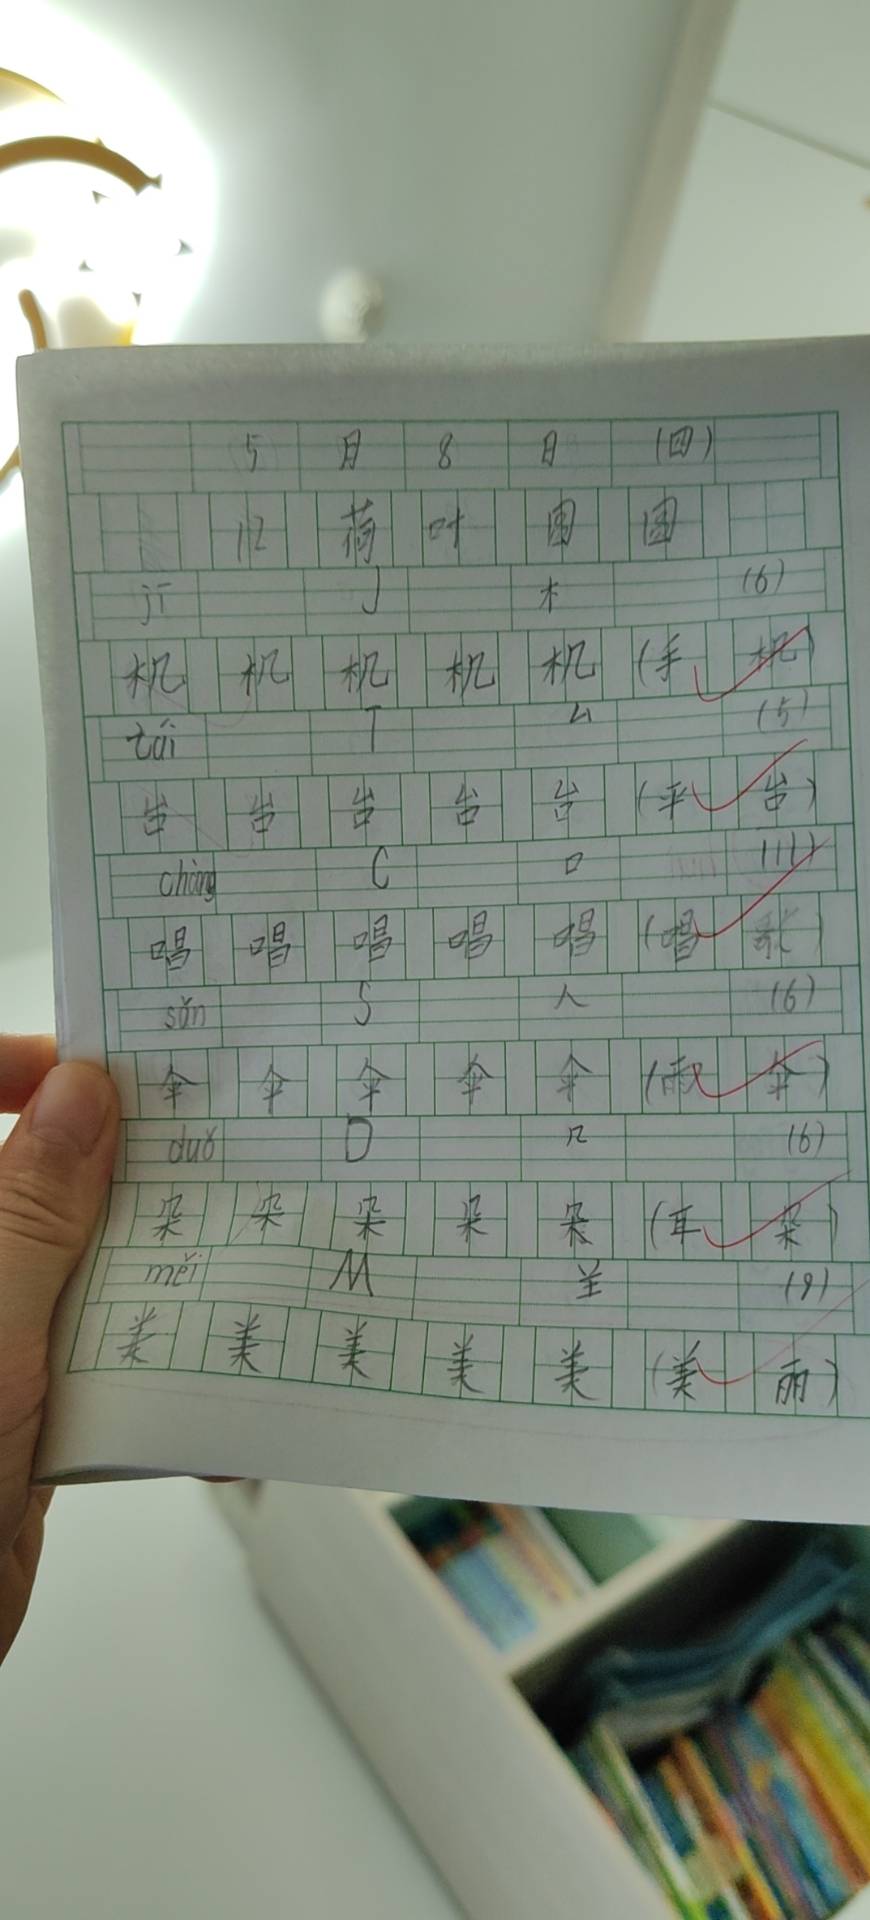 5月8日(四)
12荷叶圆圆
jī J 木 (6)
机机机机机(手机)
tái T 厶 (5)
台台台台台(平台)
chàng C 口 (11)
唱唱唱唱唱(唱歌)
sǎn S 人 (6)
伞伞伞伞伞(雨伞)
duǒ D 几 (6)
朵朵朵朵朵(耳朵)
měi M 𦍌 (9)
美美美美美(美丽)